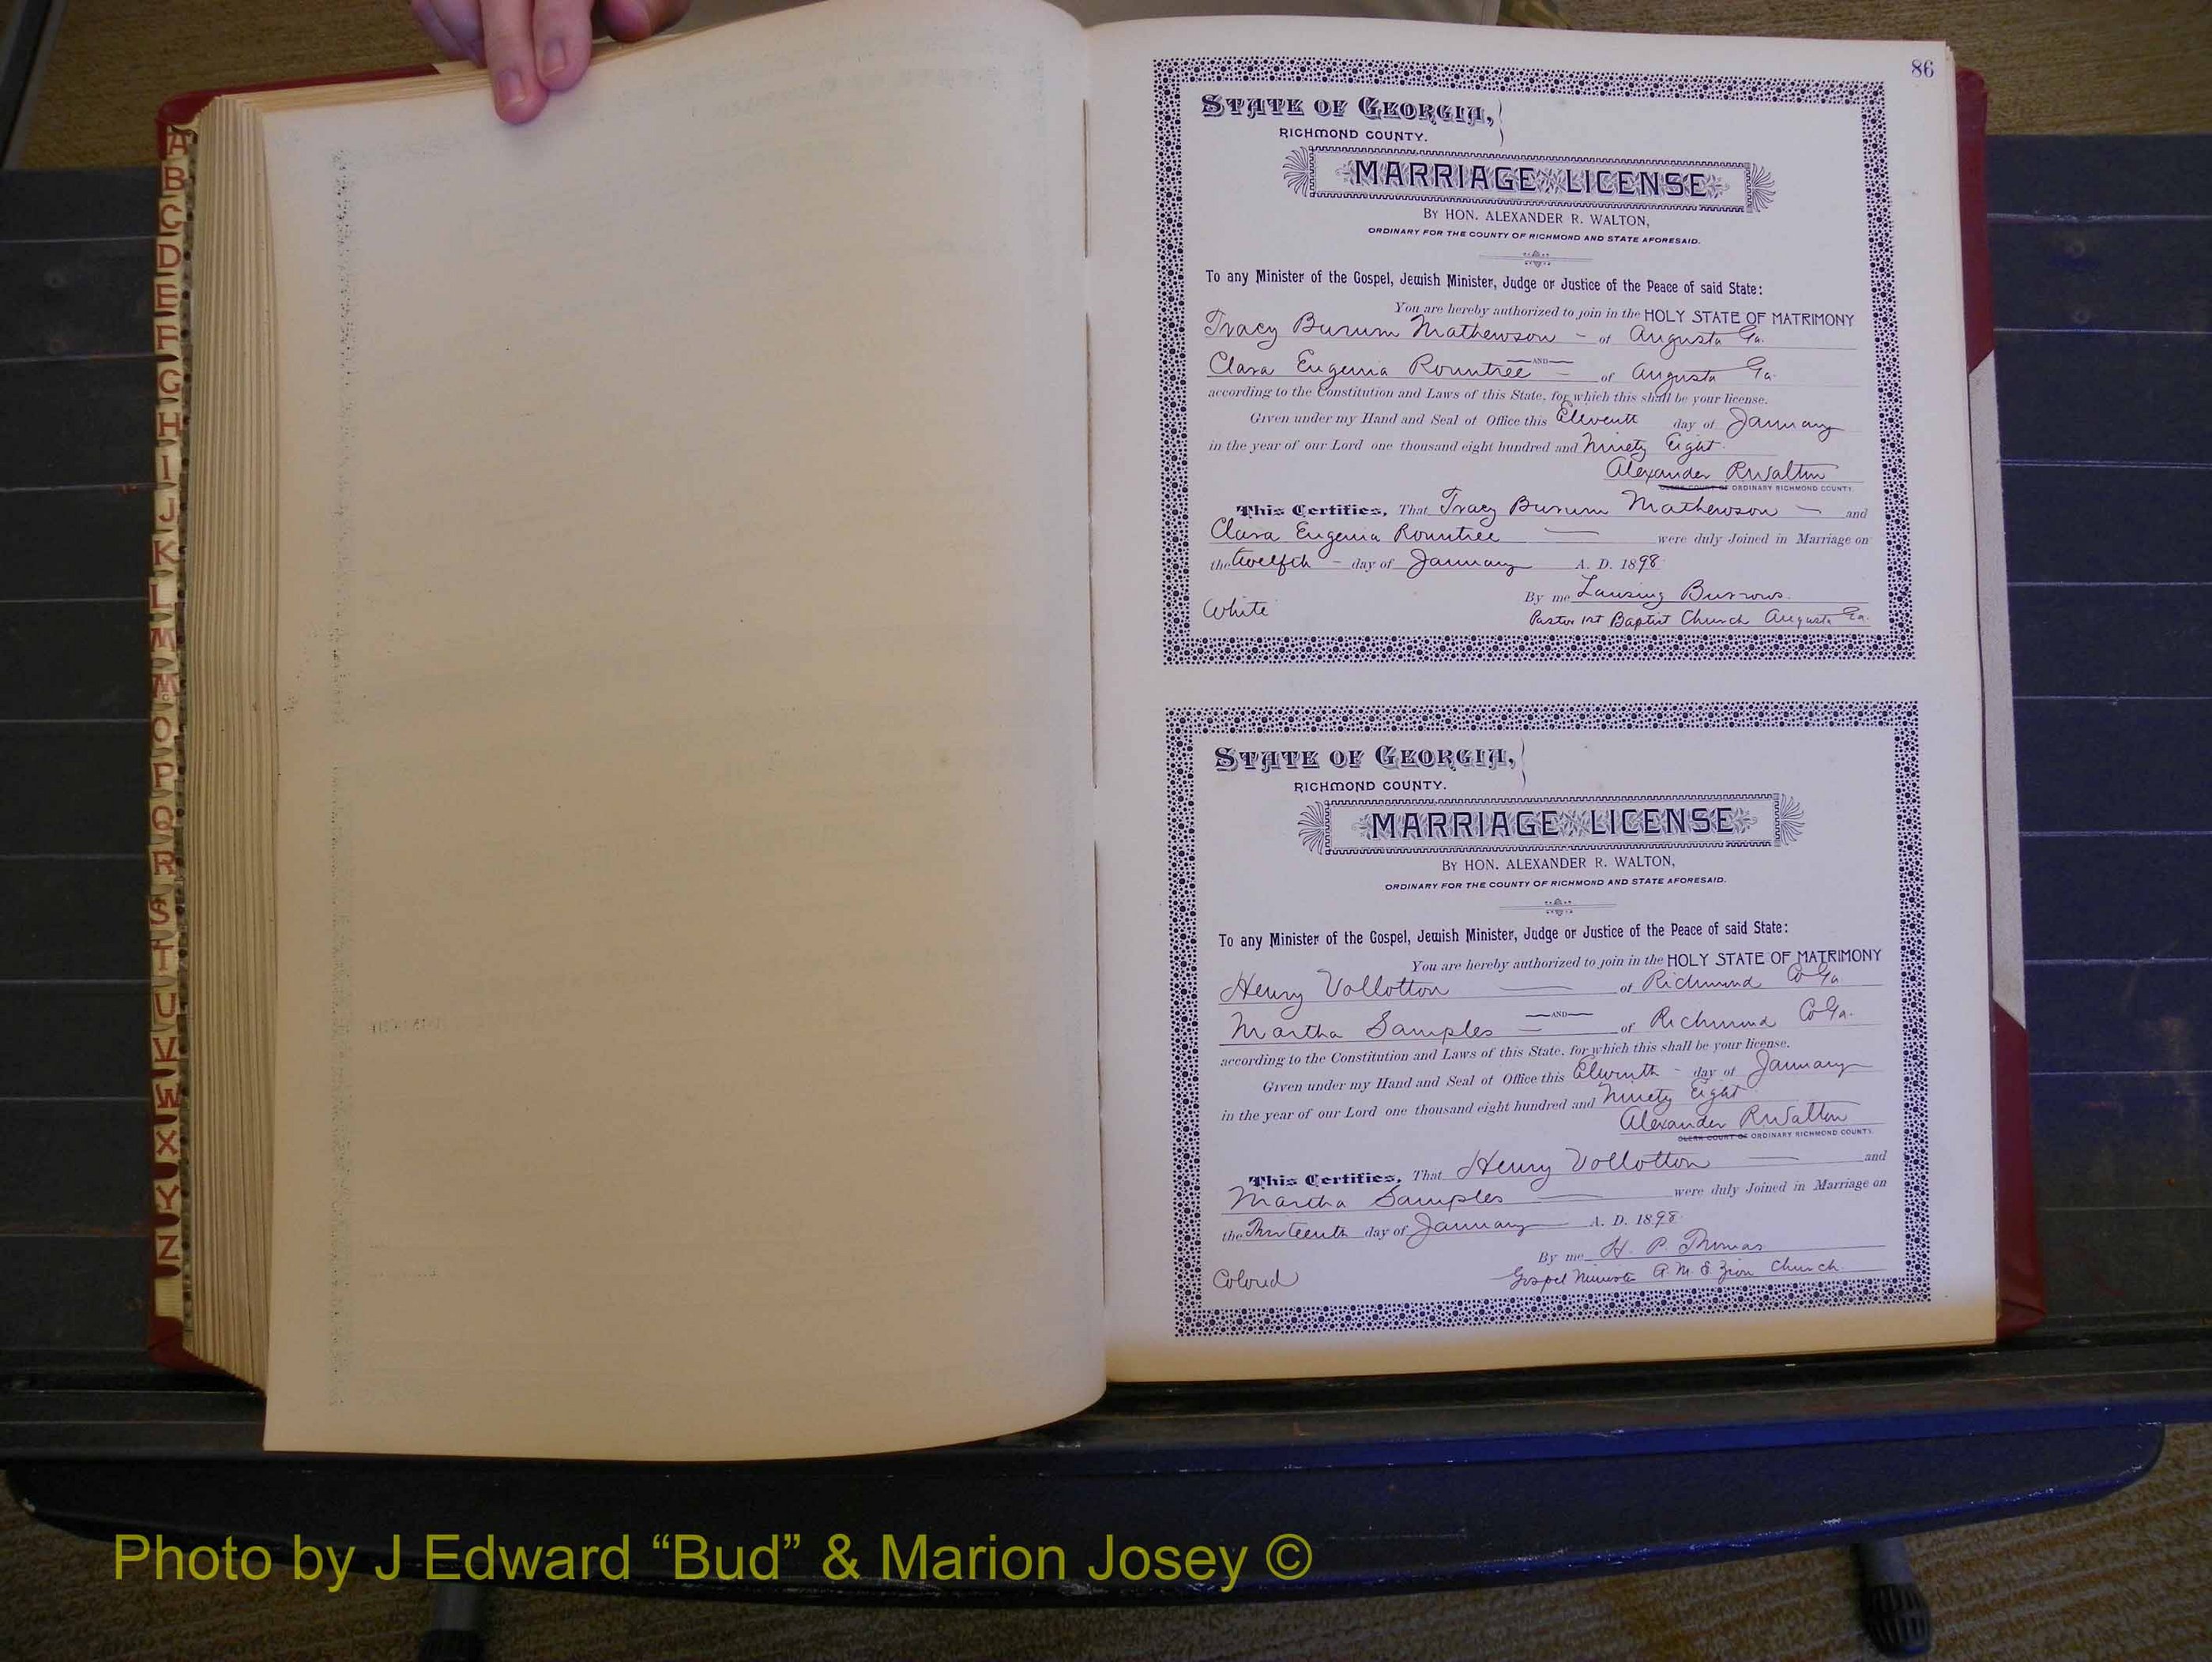 A
B
C
D
E
F
G
H
I
J
K
L
M
Mc
O
P
Q
R
S
T
U
V
W
X
Y
Z
86
STATE OF GEORGIA,
RICHMOND COUNTY.
MARRIAGE LICENSE
BY HON. ALEXANDER R. WALTON,
ORDINARY FOR THE COUNTY OF RICHMOND AND STATE AFORESAID.
To any Minister of the Gospel, Jewish Minister, Judge or Justice of the Peace of said State:
You are hereby authorized to join in the HOLY STATE OF MATRIMONY
Tracy Burum Mathewson - of Augusta Ga.
AND
Clara Eugenia Rountree of Augusta Ga.
according to the Constitution and Laws of this State, for which this shall be your license.
Given under my Hand and Seal of Office this Eleventh day of January
in the year of our Lord one thousand eight hundred and Ninety Eight.
Alexander R Walton
CLERK COURT OF ORDINARY RICHMOND COUNTY.
This Certifies, That Tracy Burum Mathewson - and
Clara Eugenia Rountree were duly Joined in Marriage on
the twelfth - day of January A. D. 1898
By me Lansing Burrows.
White Pastor 1st Baptist Church Augusta Ga.
STATE OF GEORGIA,
RICHMOND COUNTY.
MARRIAGE LICENSE
BY HON. ALEXANDER R. WALTON,
ORDINARY FOR THE COUNTY OF RICHMOND AND STATE AFORESAID.
To any Minister of the Gospel, Jewish Minister, Judge or Justice of the Peace of said State:
You are hereby authorized to join in the HOLY STATE OF MATRIMONY
Henry Vollotton of Richmond Co Ga
AND
Martha Samples of Richmond Co Ga.
according to the Constitution and Laws of this State, for which this shall be your license.
Given under my Hand and Seal of Office this Eleventh - day of January
in the year of our Lord one thousand eight hundred and Ninety Eight
Alexander R Walton
CLERK COURT OF ORDINARY RICHMOND COUNTY.
This Certifies, That Henry Vollotton and
Martha Samples were duly Joined in Marriage on
the Thirteenth day of January A. D. 1898
By me H. P. Thomas
Colored Gospel Minister A. M. E. Zion Church.
Photo by J Edward “Bud” & Marion Josey ©